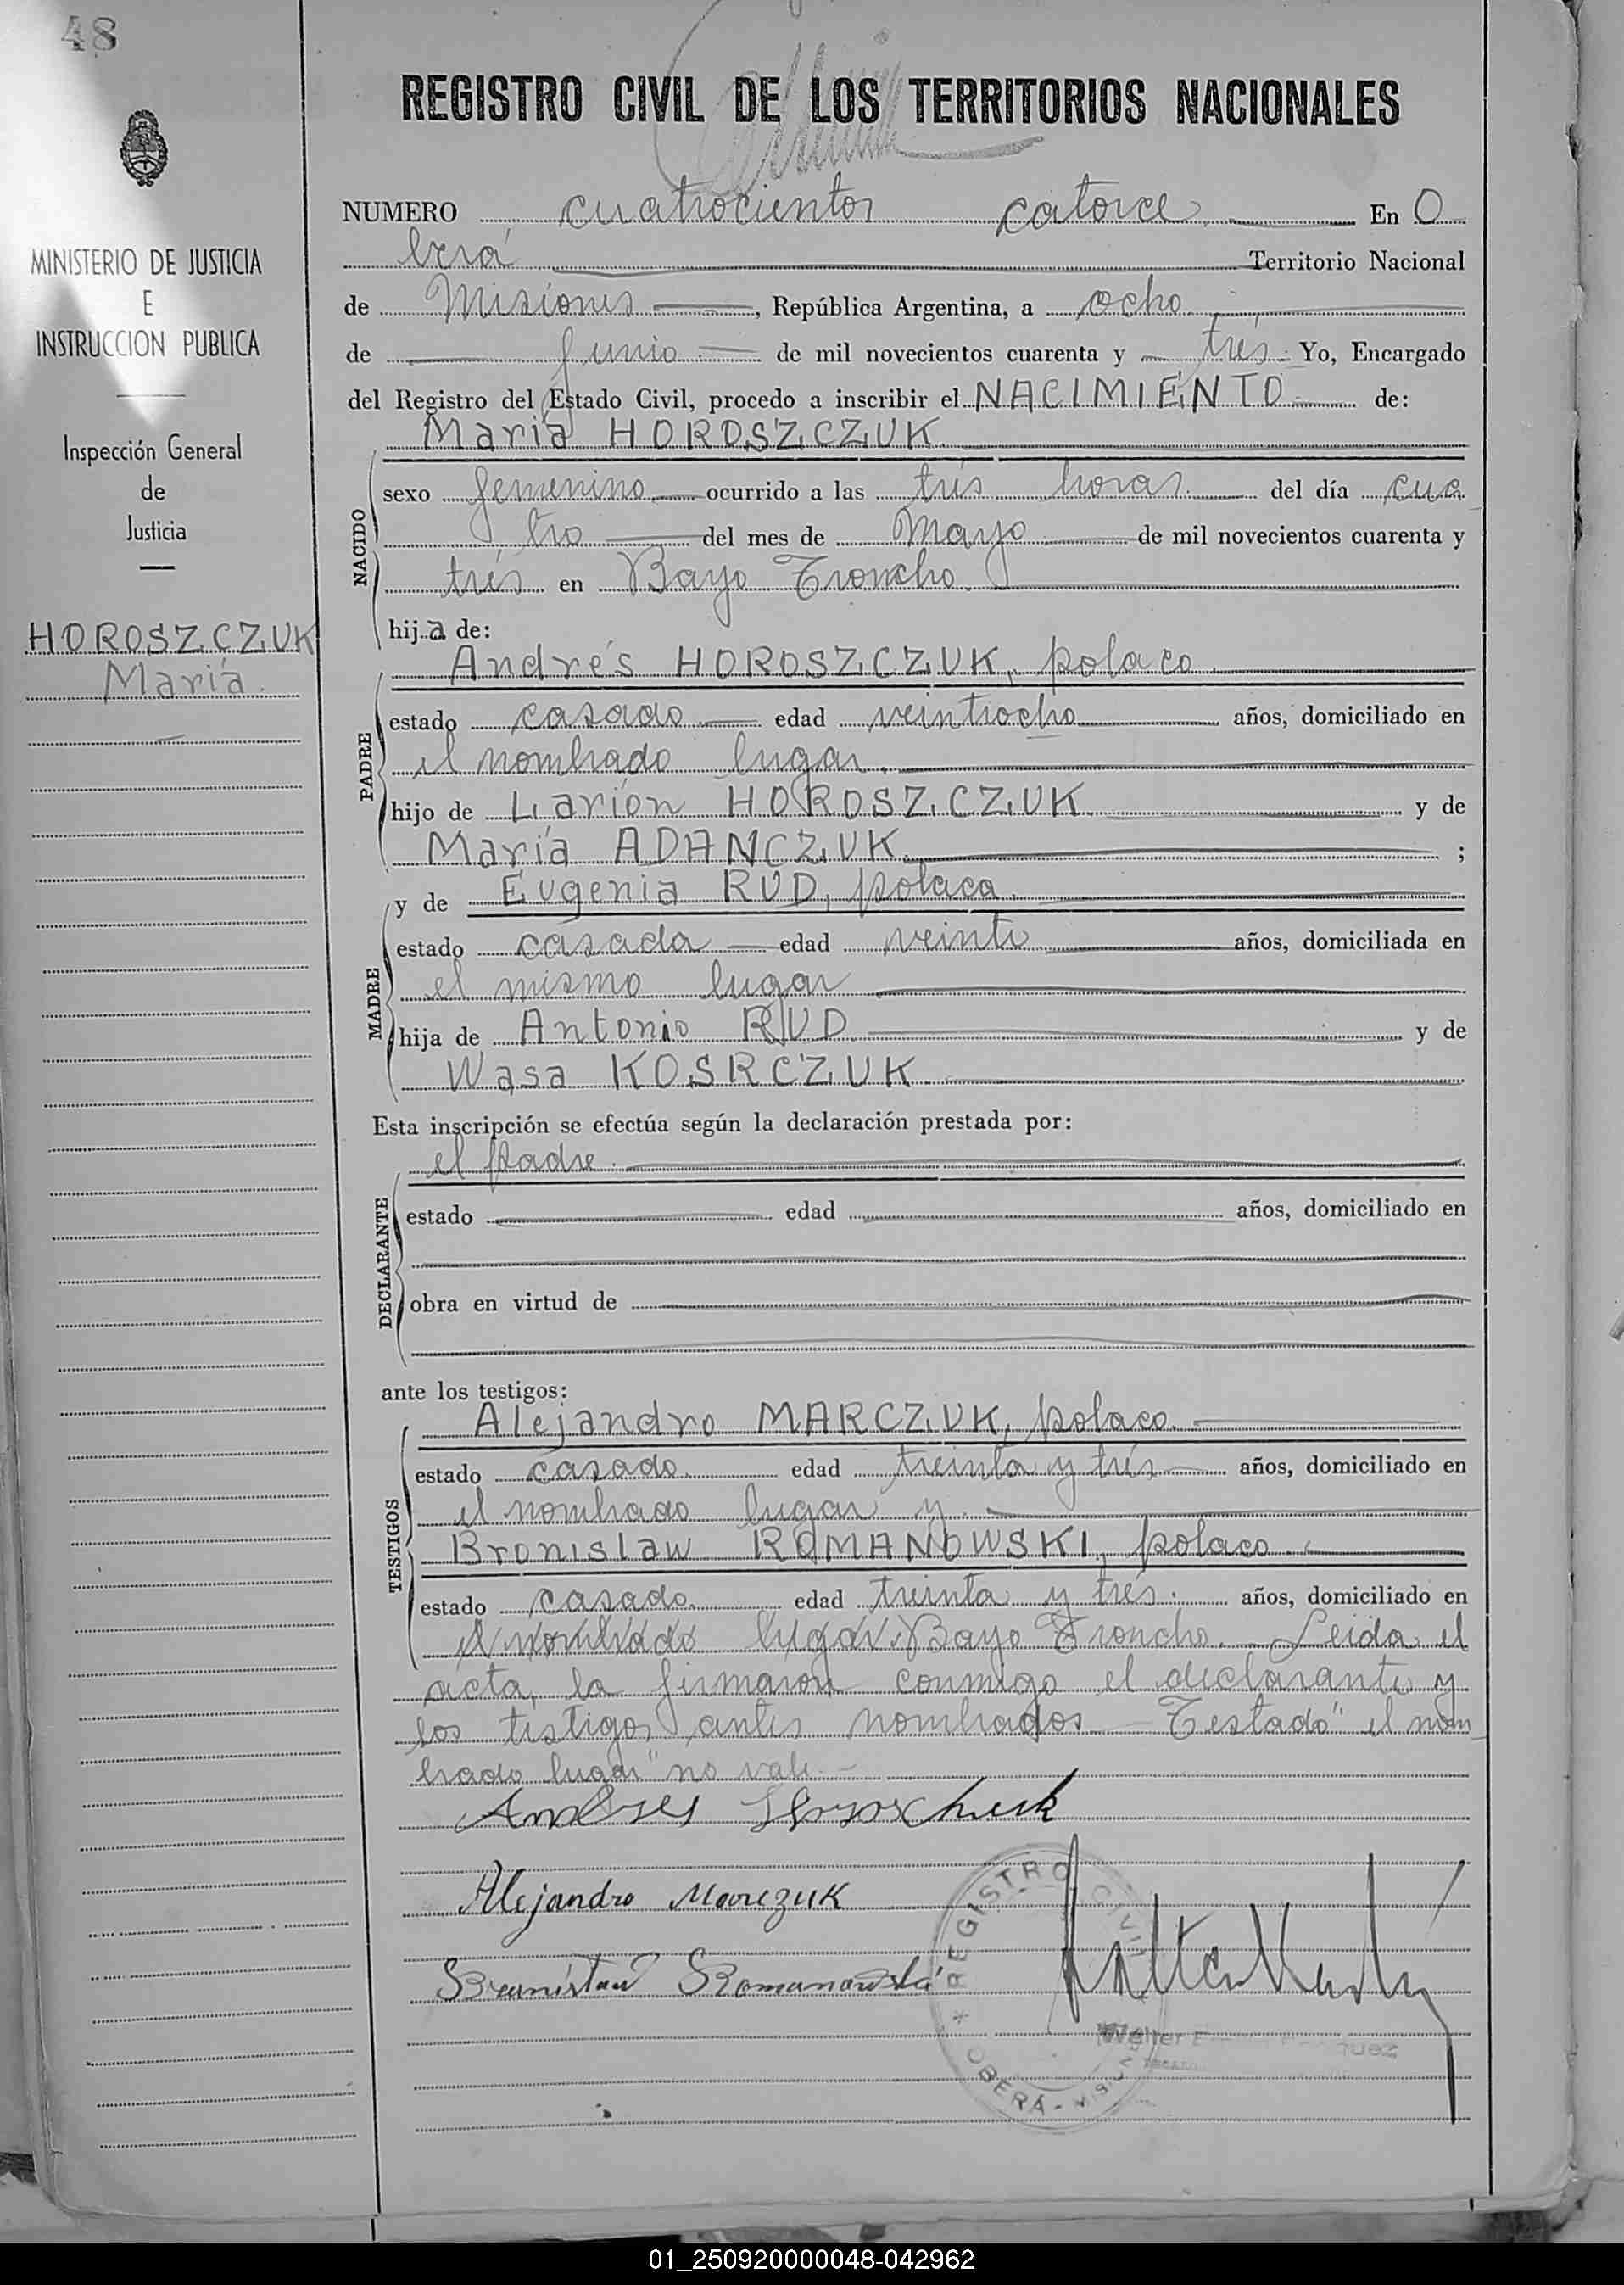 48
REGISTRO CIVIL DE LOS TERRITORIOS NACIONALES
MINISTERIO DE JUSTICIA
E
INSTRUCCION PUBLICA
Inspección General
de
Justicia
HOROSZCZUK
María
NUMERO cuatrocientos catorce En O
berá Territorio Nacional
de Misiones, República Argentina, a ocho
de Junio de mil novecientos cuarenta y trés Yo, Encargado
del Registro del Estado Civil, procedo a inscribir el NACIMIENTO de:
María HOROSZCZUK
NACIDO
sexo femenino ocurrido a las trés horas del día cua
tro del mes de Mayo de mil novecientos cuarenta y
trés en Bayo Troncho
hija de:
PADRE
Andrés HOROSZCZUK, polaco
estado casado edad veintiocho años, domiciliado en
el nombrado lugar.
hijo de Larión HOROSZCZUK y de
María ADANCZUK ;
MADRE
y de Eugenia RUD, polaca.
estado casada edad veinte años, domiciliada en
el mismo lugar
hija de Antonio RUD y de
Wasa KOSRCZUK.
Esta inscripción se efectúa según la declaración prestada por:
el padre.
DECLARANTE
estado edad años, domiciliado en
obra en virtud de
ante los testigos:
TESTIGOS
Alejandro MARCZUK, polaco.
estado casado edad treinta y trés años, domiciliado en
el nombrado lugar y
Bronislaw ROMANOWSKI, polaco.
estado casado edad treinta y trés. años, domiciliado en
el nombrado lugar Bayo Troncho. Leida el
acta, la firmaron conmigo el declarante y
los testigos antes nombrados Testado "el nom
brado lugar" no vale.
Andres
Alejandro Marczuk
Bronistaw Romanowski
REGISTRO CIVIL
OBERÁ
Walter
01_250920000048-042962